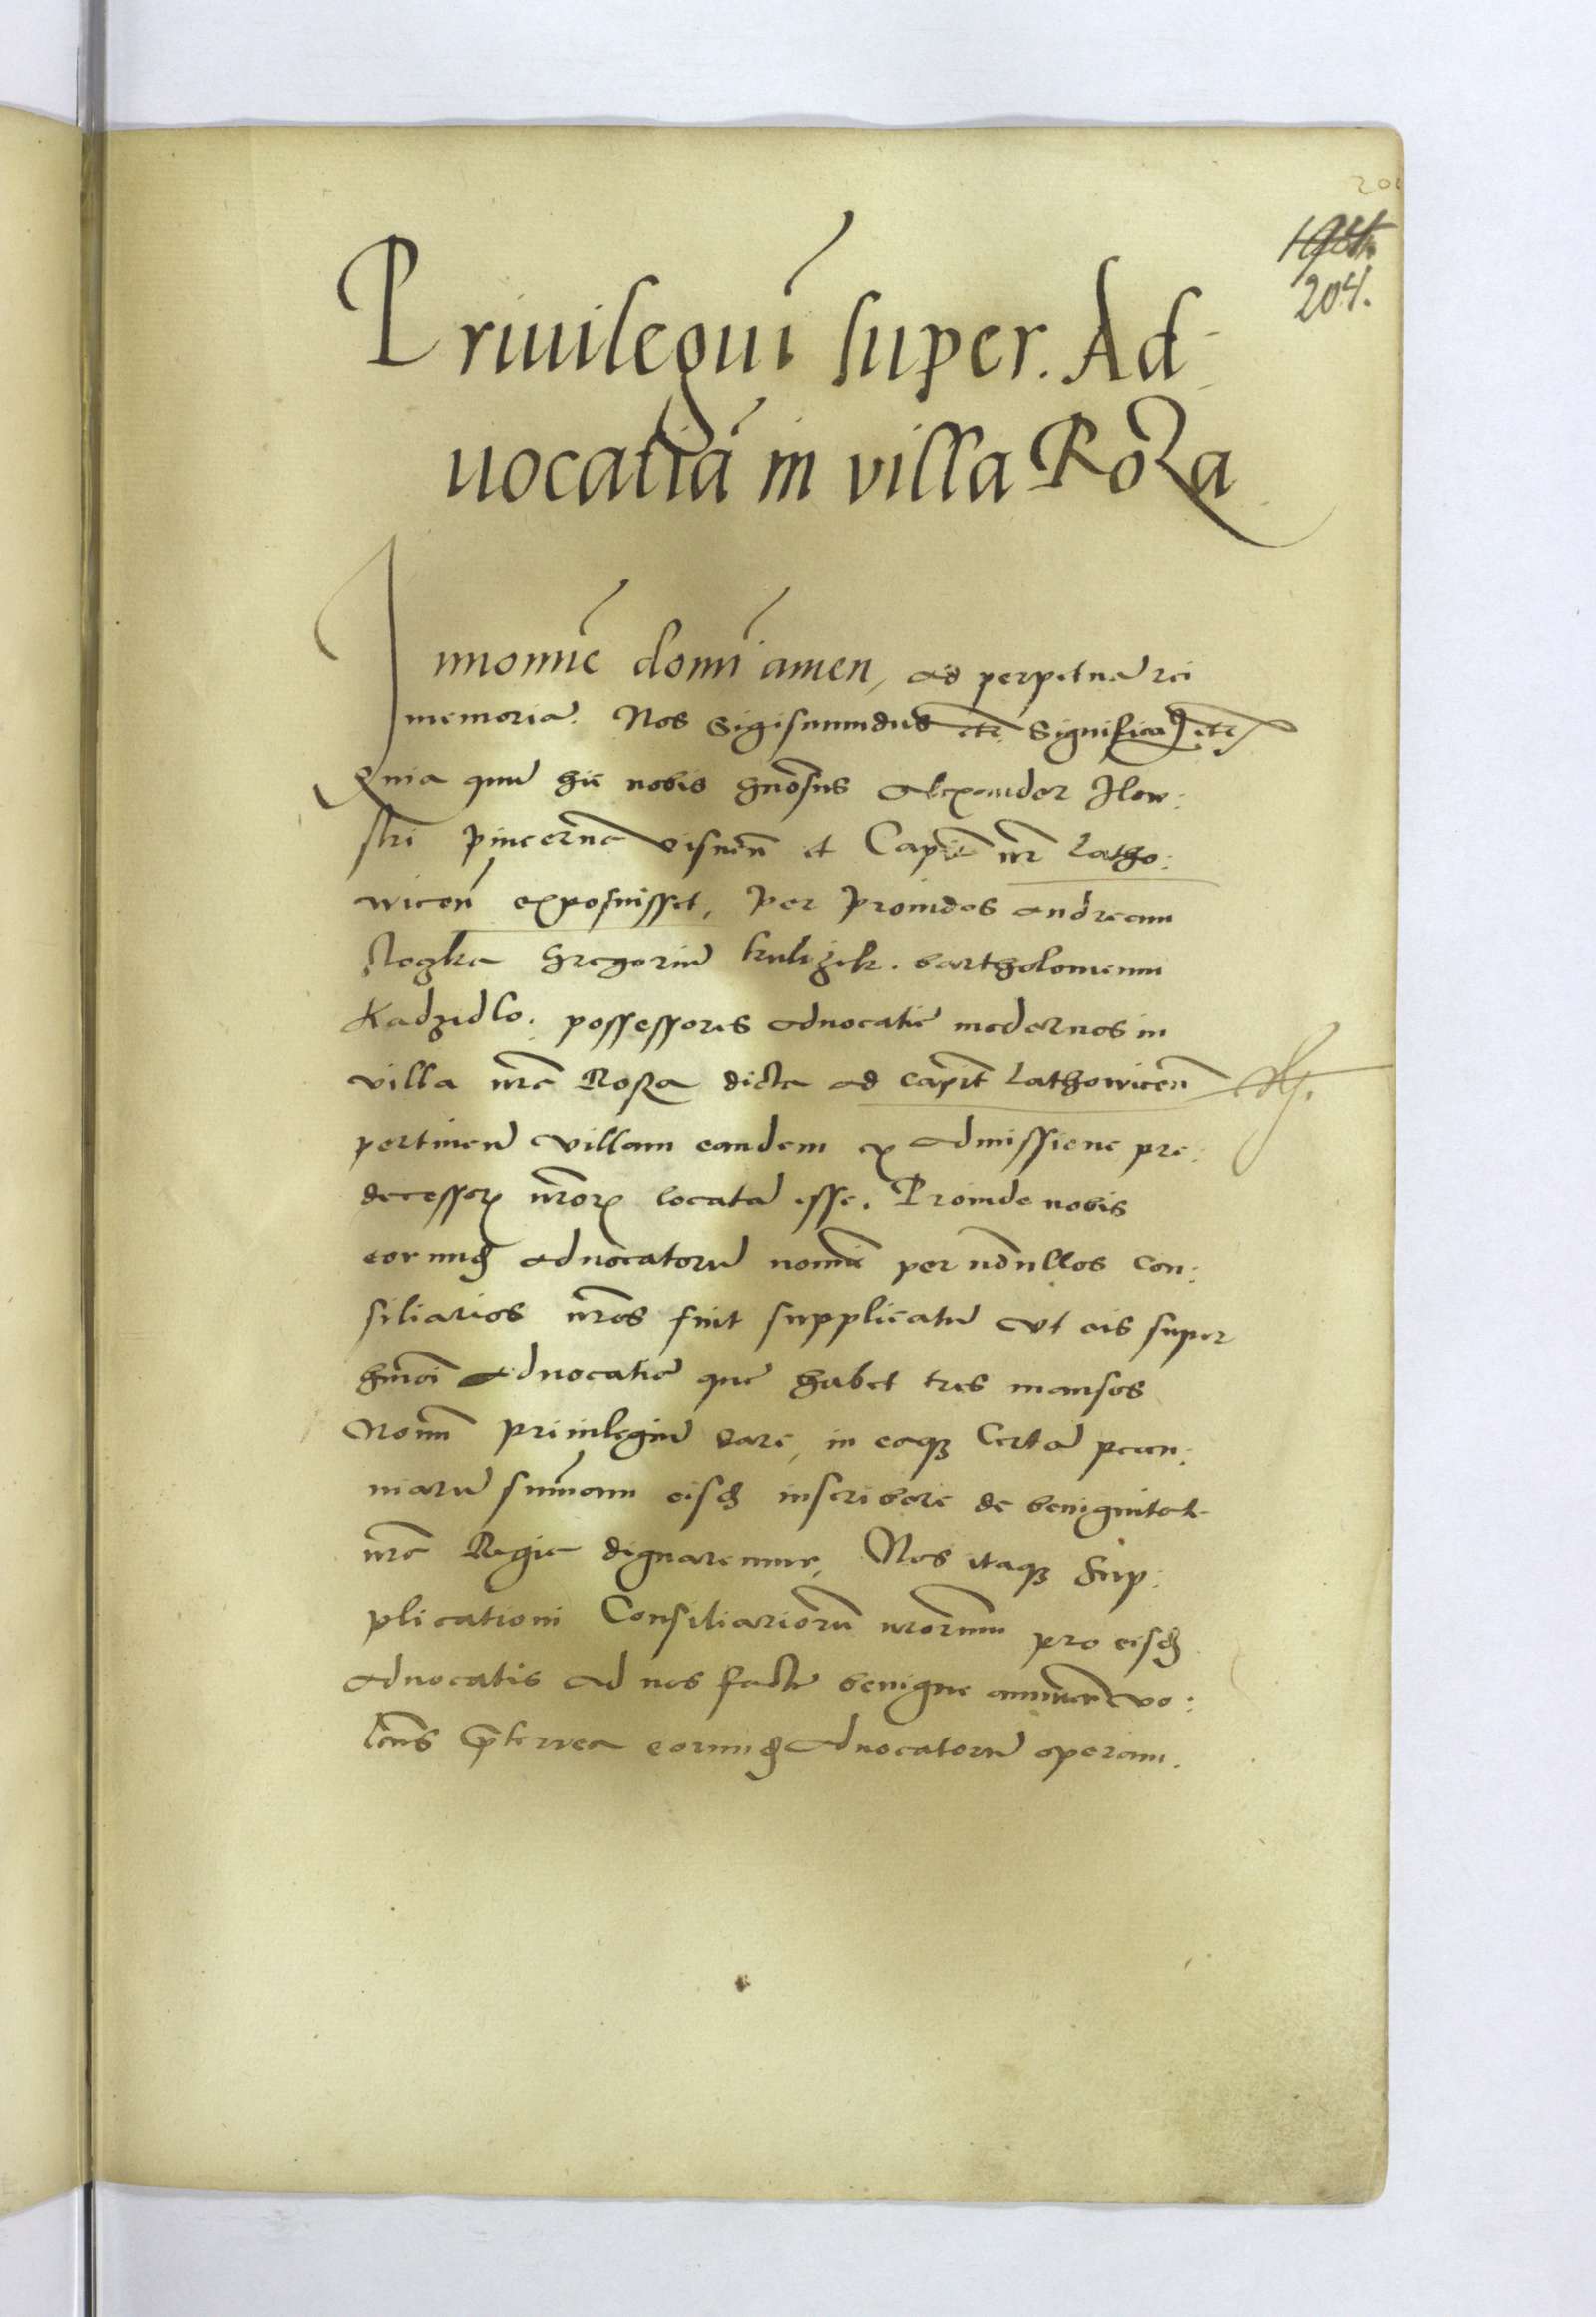 204.
Priuilegiu͂ super. Ad-
uocatia͂ in villa Roza
In nomie͂ domi͂ amen, ad perpetua͂ rei
memoria͂. Nos Sigismundus etc͂ Significa etc͂
Quia quu͂ hic nobis gn͂osus Alexander Ilow:
ski pincerna visnen͂ et Capit͂ nr͂ Latho:
wicen͂ exposuisset, per prouidos andream
gregoriu͂ kulizek. bartholomeum
Kadzidlo. possessores aduocatie͂ modernos in
villa nr͂a Roza dicta ad capit͂ Lathowicen͂
pertinen͂ villam eandem ex admissione pre:
decessor͂ nr͂or͂ locata͂ esse. Proinde nobis
eorund͂ aduocatoru͂ nomi͂e per no͂nullos Con:
siliarios nr͂os fuit supplicatu͂ vt eis super
hm͂oi Aduocatia͂ que habet tres mansos
Nouu͂ priuilegiu͂ dare, in eaq͂ Certa͂ pecu:
niaru͂ su͂mam eisd͂ inscribere de benignitate
nr͂a Regia dignaremur, Nos itaq͂ Sup:
plicationi Consiliarioru͂ nr͂orum pro eisd͂
aduocatis ad nos facte benigne annuen͂ vo:
len͂s p͂terea eorund͂ Aduocatoru͂ operam.